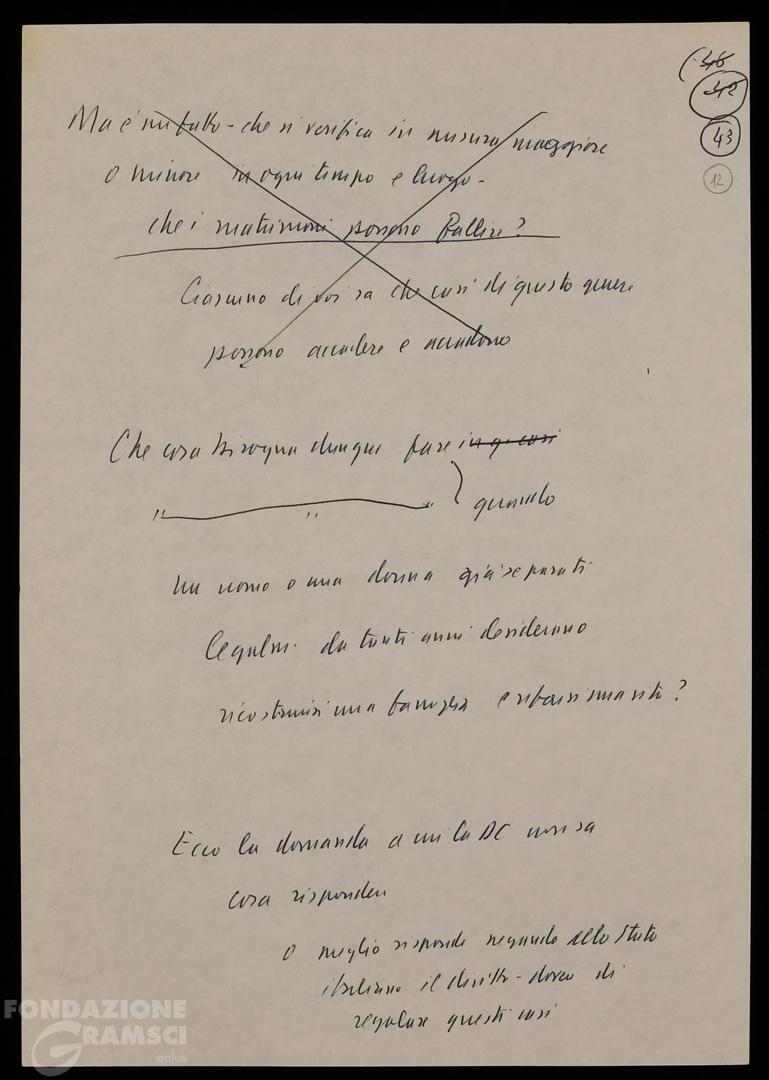 46
42
43
12
Ma è un fatto - che si verifica in misura maggiore
o minore in ogni tempo e luogo -
che i matrimoni possono fallire?
Ciascuno di voi sa che casi di questo genere
possono accadere e accadono
Che cosa bisogna dunque fare in q. casi
" " " quando
un uomo o una donna già separati
legalm. da tanti anni desiderano
ricostruirsi una famiglia e rifarsi una vita?
Ecco la domanda a cui la DC non sa
cosa rispondere
o meglio risponde negando allo Stato
italiano il diritto-dovere di
regolare questi casi
FONDAZIONE
GRAMSCI
onlus